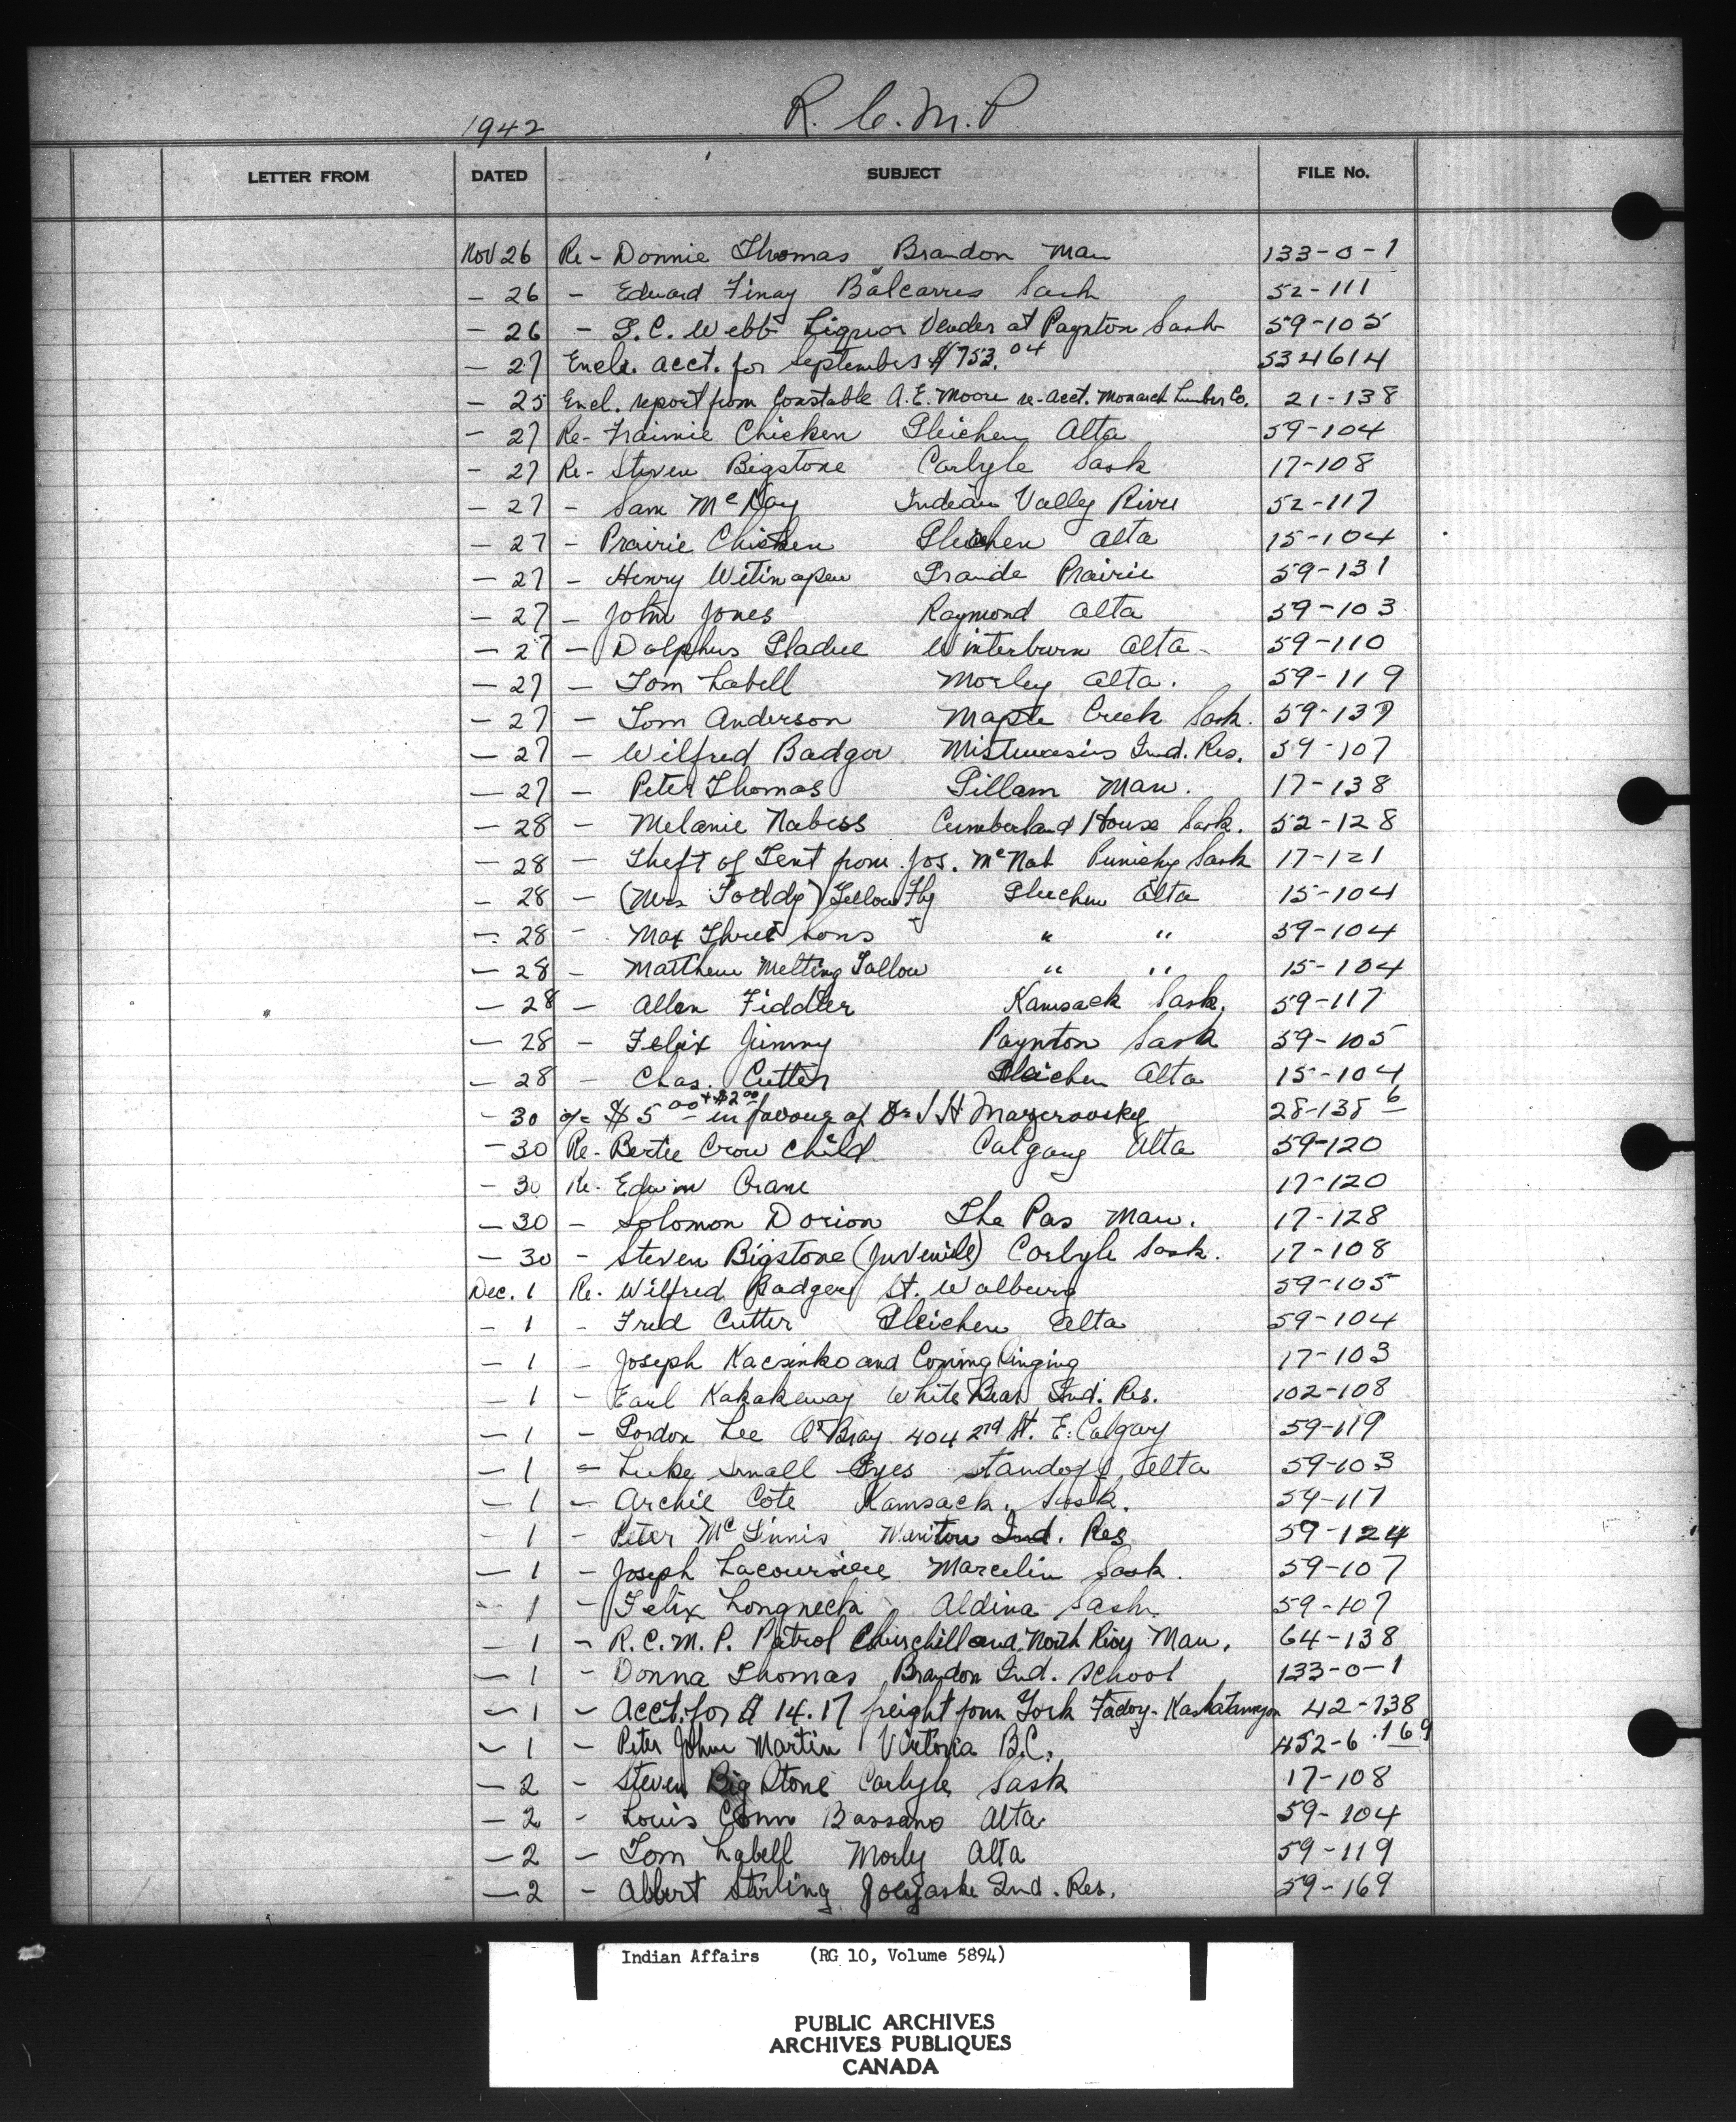 1942 R.C.M.P
LETTER FROM DATED SUBJECT FILE No.
Nov 26 Re - Donnie Thomas Brandon Man 133-0-1
- 26 - Edward Finay Balcarres Sask 52-111
- 26 - G.C. Webb Liquor Vender at Paynton Sask 59-105
- 27 Encl. acct. for September $753.04 534614
- 25 Encl. report from Constable A.E. Moore re-acct. Monarch Lumber Co. 21-138
- 27 Re- Chicken Gleichen Alta 59-104
- 27 Re- Steven Bigstone Carlyle Sask 17-108
- 27 - Sam McKay Indian Valley River 52-117
- 27 - Prairie Chicken Gleichen Alta 15-104
- 27 - Henry Grande Prairie 59-131
- 27 - John Jones Raymond Alta 59-103
- 27 - Dolphus Gladue Winterburn Alta - 59-110
- 27 - Tom Labell Morley Alta. 59-119
- 27 - Tom Anderson Maple Creek Sask. 59-137
- 27 - Wilfred Badger Mistawasis Ind. Res. 59-107
- 27 - Peter Thomas Gillam Man. 17-138
- 28 - Melanie Nabess Cumberland House Sask. 52-128
- 28 - Theft of Tent from Jos. McNab Sask 17-121
- 28 - (Mrs Toddy) Yellow Fly Gleichen Alta 15-104
- 28 - Max Three Sons " " 59-104
- 28 - Matthew Melting Tallow " " 15-104
- 28 - Allen Fiddler Kamsack Sask. 59-117
- 28 - Felix Jimmy Paynton Sask 59-105
- 28 - Chas. Cutter Gleichen Alta 15-104
- 30 a/c $5.00 + $2.00 in favour of Dr 28-138 6
- 30 Re- Bertie Crow Child Calgary Alta 59-120
- 30 Re- Edwin Crane 17-120
- 30 - Solomon Dorion The Pas Man. 17-128
- 30 - Steven Bigstone (Juvenile) Carlyle Sask. 17-108
Dec. 1 Re. Wilfred Badger St. Walburg 59-105
- 1 - Fred Cutter Gleichen Alta 59-104
- 1 - Joseph and Coming Singing 17-103
- 1 - Earl Kakakeway White Bear Ind. Res. 102-108
- 1 - Gordon Lee 404 2nd St. E. Calgary 59-119
- 1 - Luke Small Eyes Standoff, Alta 59-103
- 1 - Archie Cote Kamsack, Sask. 59-117
- 1 - Peter McGinnis Ind. Res 59-124
- 1 - Joseph Lacoursiere Marcelin Sask. 59-107
- 1 - Felix Longneck Aldina Sask. 59-107
- 1 - R.C.M.P. Patrol Churchill and North River Man. 64-138
- 1 - Donna Thomas Brandon Ind. School 133-0-1
- 1 - Acct. for $14.17 freight from York Factory - 42-138
- 1 - Peter John Martin Victoria B.C. 452-6 .169
- 2 - Steven Big Stone Carlyle Sask 17-108
- 2 - Louis Bassano Alta 59-104
- 2 - Tom Labell Morly Alta 59-119
- 2 - Albert Sterling Ind. Res. 59-169
Indian Affairs (RG 10, Volume 5894)
PUBLIC ARCHIVES
ARCHIVES PUBLIQUES
CANADA